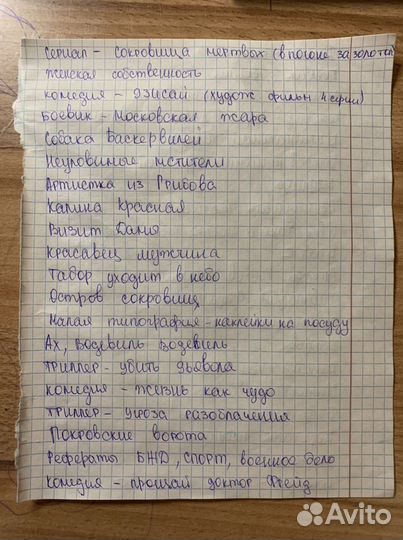 сериал - сокровища мертвых (в погоне за золотом)
женская собственность
комедия - эзисай (худож фильм 4 серии)
боевик - московская жара
Собака Баскервилей
Неуловимые мстители
Артистка из Грибова
Калина Красная
Визит Дамы
Красавец мужчина
Табор уходит в небо
Остров сокровищ
Малая типография - наклейки на посуду
Ах, водевиль водевиль
триллер - убить дьявола
комедия - жизнь как чудо
триллер - угроза разоблачения
Покровские ворота
Рефераты БЖД, спорт, военное дело
комедия - прощай доктор Фрейд
Avito